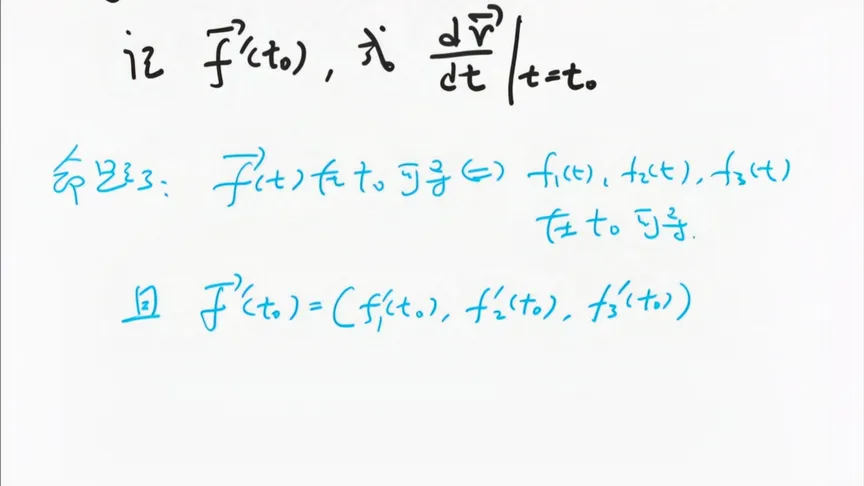 记 \vec{f}'(t₀), 或 \frac{d\vec{r}}{dt}|_{t=t₀}
命题3: \vec{f}(t)在t₀可导⇔ f₁(t), f₂(t), f₃(t)
在t₀可导.
且 \vec{f}'(t₀)=(f₁'(t₀), f₂'(t₀), f₃'(t₀))